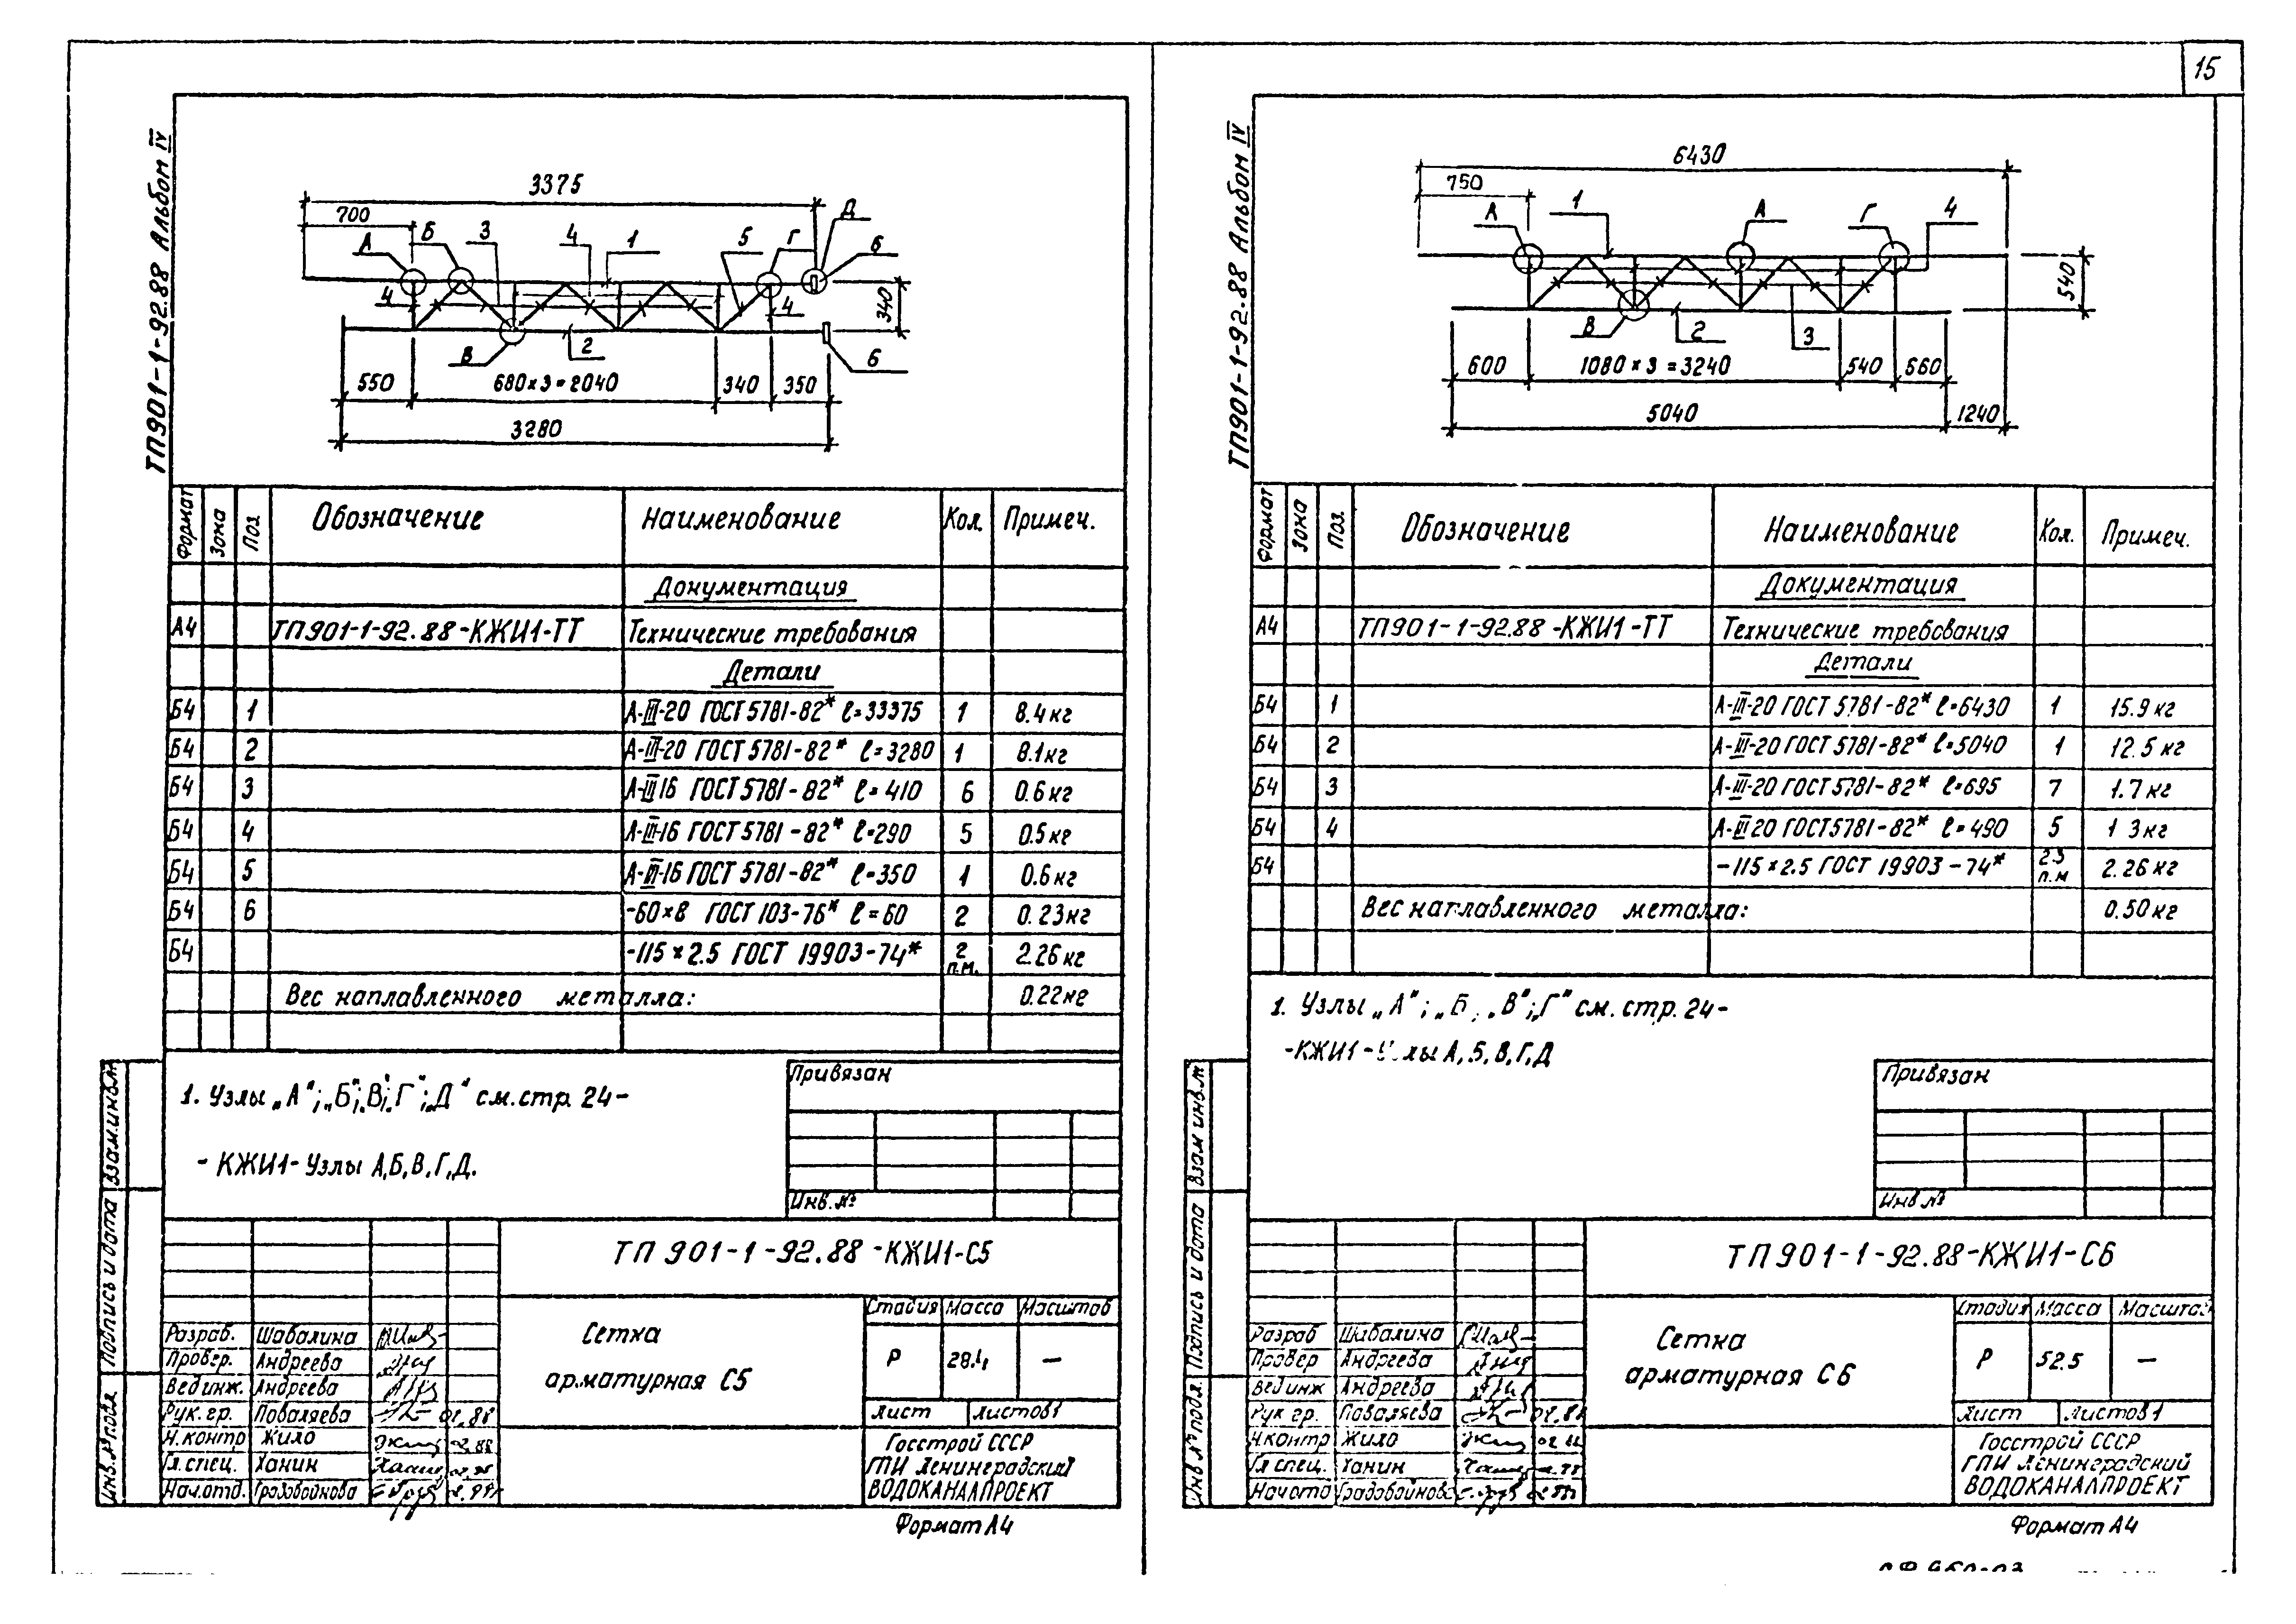 15
ТП901-1-92.88 Альбом IV
3375
700
А
Б
3
4
1
5
Г
Д
6
4
4
340
В
2
6
550
680×3=2040
340
350
3280
Формат
Зона
Поз.
Обозначение
Наименование
Кол.
Примеч.
Документация
А4 ТП901-1-92.88-КЖИ1-ТТ Технические требования
Детали
Б4 1 А-III-20 ГОСТ 5781-82* ℓ=33375 1 8.4кг
Б4 2 А-III-20 ГОСТ 5781-82* ℓ=3280 1 8.1кг
Б4 3 А-III-16 ГОСТ 5781-82* ℓ=410 6 0.6кг
Б4 4 А-III-16 ГОСТ 5781-82* ℓ=290 5 0.5кг
Б4 5 А-III-16 ГОСТ 5781-82* ℓ=350 1 0.6кг
Б4 6 -60×8 ГОСТ 103-76* ℓ=60 2 0.23кг
Б4 -115×2.5 ГОСТ 19903-74* 2 п.м. 2.26кг
Вес наплавленного металла: 0.22кг
1. Узлы „А"; „Б"; „В"; „Г"; „Д" см. стр. 24-
- КЖИ1- Узлы А,Б,В,Г,Д.
Привязан
Инв.№
Взам.инв.№
Подпись и дата
Инв.№подл.
ТП 901-1-92.88-КЖИ1-С5
Сетка
арматурная С5
Стадия Масса Масштаб
Р 28.4 —
Лист Листов 1
Госстрой СССР
ГПИ Ленинградский
ВОДОКАНАЛПРОЕКТ
Разраб. Шабалина
Провер. Андреева
Вед инж. Андреева
Рук. гр. Поваляева 02.88
Н.контр Жило 02.88
Гл.спец. Ханин
Нач.отд. Градобойнова
Формат А4
ТП901-1-92.88 Альбом IV
6430
750
А
1
А
Г
4
540
В
2
3
600
1080×3=3240
540
560
5040
1240
Формат
Зона
Поз.
Обозначение
Наименование
Кол.
Примеч.
Документация
А4 ТП901-1-92.88-КЖИ1-ТТ Технические требования
Детали
Б4 1 А-III-20 ГОСТ 5781-82* ℓ=6430 1 15.9кг
Б4 2 А-III-20 ГОСТ 5781-82* ℓ=5040 1 12.5кг
Б4 3 А-III-20 ГОСТ 5781-82* ℓ=695 7 1.7кг
Б4 4 А-III-20 ГОСТ 5781-82* ℓ=490 5 1 3кг
Б4 -115×2.5 ГОСТ 19903-74* 2.3 п.м 2.26кг
Вес наплавленного металла: 0.50кг
1. Узлы „А"; „Б, „В"; „Г" см. стр. 24-
-КЖИ1-Узлы А,Б,В,Г,Д
Привязан
Инв №
Взам инв.№
Подпись и дата
Инв № подл.
ТП901-1-92.88-КЖИ1-С6
Сетка
арматурная С6
Стадия Масса Масштаб
Р 52.5 —
Лист Листов 1
Госстрой СССР
ГПИ Ленинградский
ВОДОКАНАЛПРОЕКТ
Разраб Шабалина
Провер Андреева
Вед инж Андреева
Рук гр. Поваляева 02.88
Н.контр Жило
Гл спец. Ханин
Нач отд Градобойнова
Формат А4